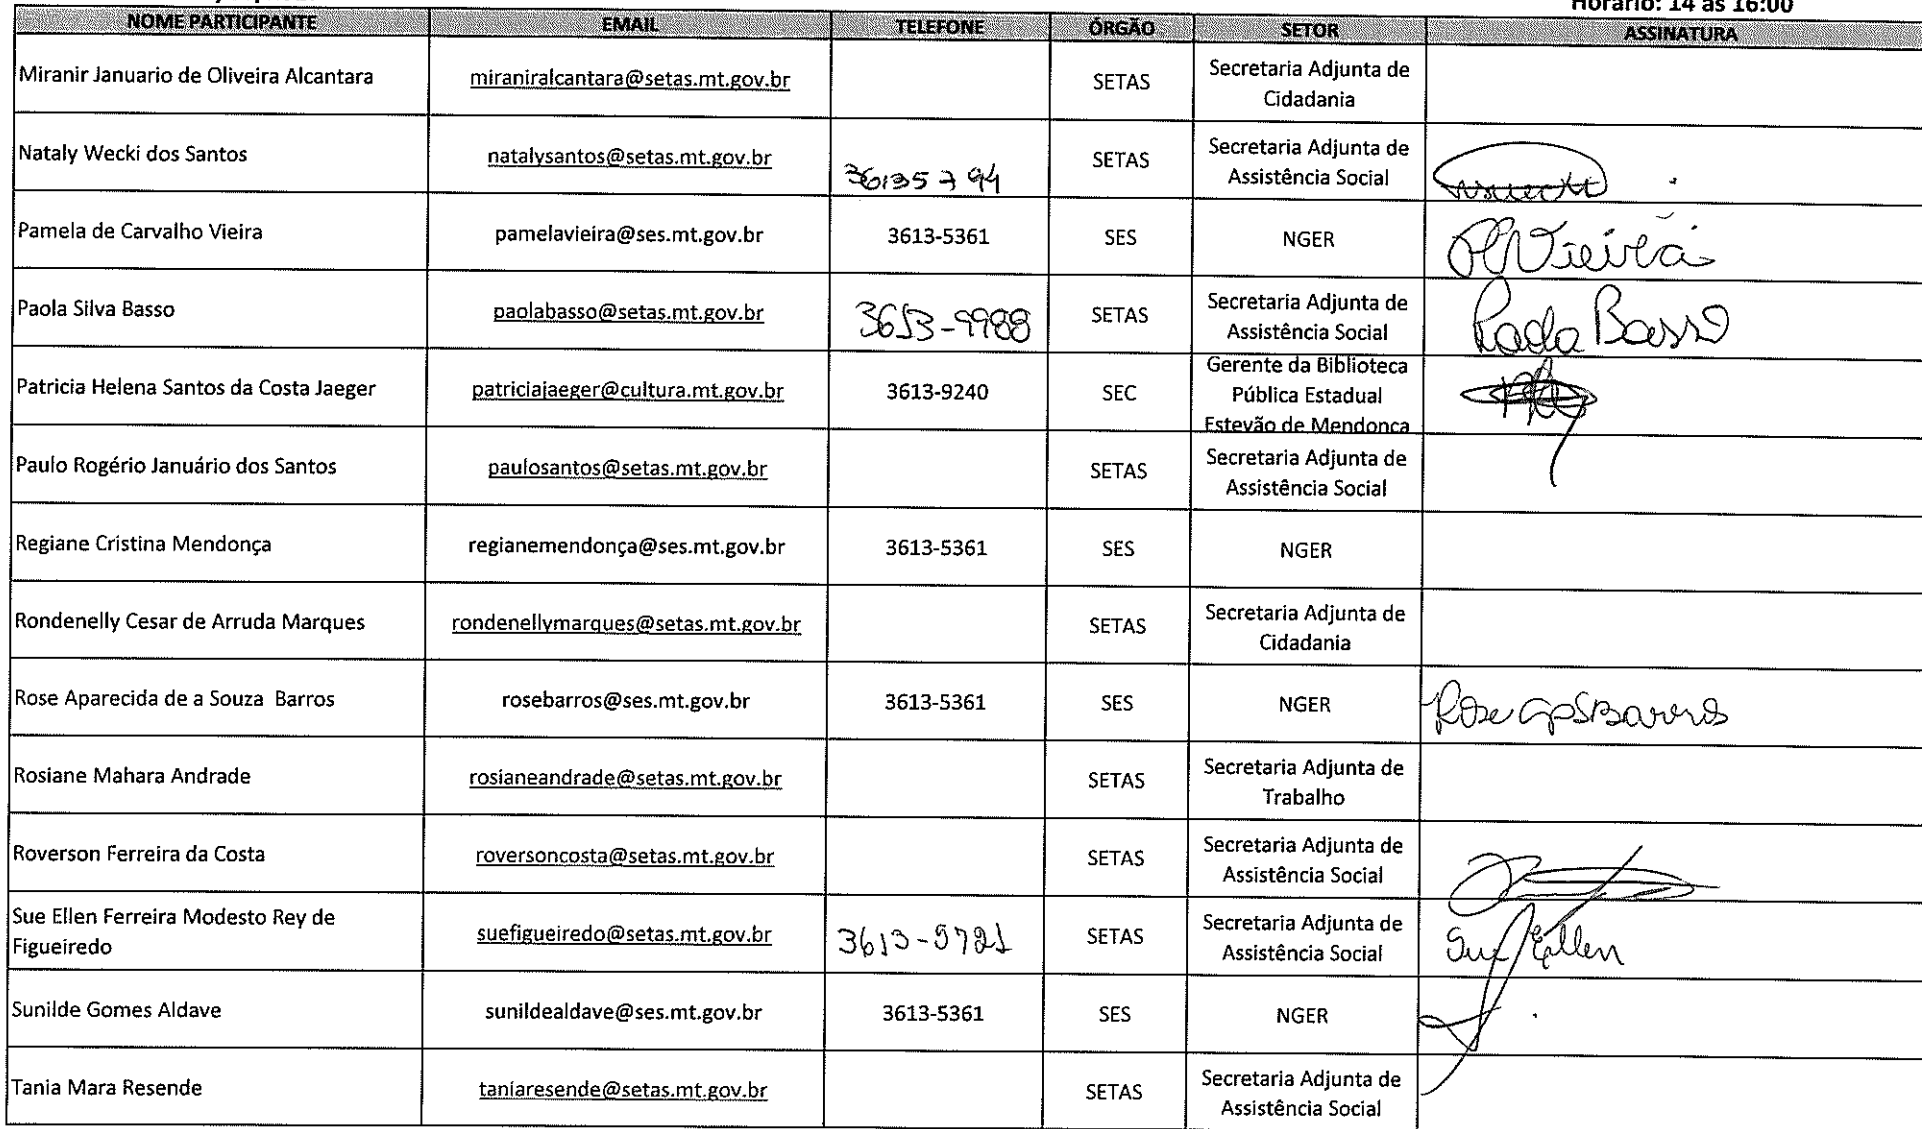 Horário: 14 às 16:00
NOME PARTICIPANTE EMAIL TELEFONE ÓRGÃO SETOR ASSINATURA
Miranir Januario de Oliveira Alcantara miraniralcantara@setas.mt.gov.br SETAS Secretaria Adjunta de
Cidadania
Nataly Wecki dos Santos natalysantos@setas.mt.gov.br 36135794 SETAS Secretaria Adjunta de
Assistência Social
Pamela de Carvalho Vieira pamelavieira@ses.mt.gov.br 3613-5361 SES NGER Vieira
Paola Silva Basso paolabasso@setas.mt.gov.br 3613-9988 SETAS Secretaria Adjunta de
Assistência Social Paola Basso
Patricia Helena Santos da Costa Jaeger patriciajaeger@cultura.mt.gov.br 3613-9240 SEC Gerente da Biblioteca
Pública Estadual
Estevão de Mendonça
Paulo Rogério Januário dos Santos paulosantos@setas.mt.gov.br SETAS Secretaria Adjunta de
Assistência Social
Regiane Cristina Mendonça regianemendonça@ses.mt.gov.br 3613-5361 SES NGER
Rondenelly Cesar de Arruda Marques rondenellymarques@setas.mt.gov.br SETAS Secretaria Adjunta de
Cidadania
Rose Aparecida de a Souza Barros rosebarros@ses.mt.gov.br 3613-5361 SES NGER Rose Ap S Barros
Rosiane Mahara Andrade rosianeandrade@setas.mt.gov.br SETAS Secretaria Adjunta de
Trabalho
Roverson Ferreira da Costa roversoncosta@setas.mt.gov.br SETAS Secretaria Adjunta de
Assistência Social
Sue Ellen Ferreira Modesto Rey de
Figueiredo suefigueiredo@setas.mt.gov.br 3613-5721 SETAS Secretaria Adjunta de
Assistência Social Sue Ellen
Sunilde Gomes Aldave sunildealdave@ses.mt.gov.br 3613-5361 SES NGER
Tania Mara Resende taniaresende@setas.mt.gov.br SETAS Secretaria Adjunta de
Assistência Social